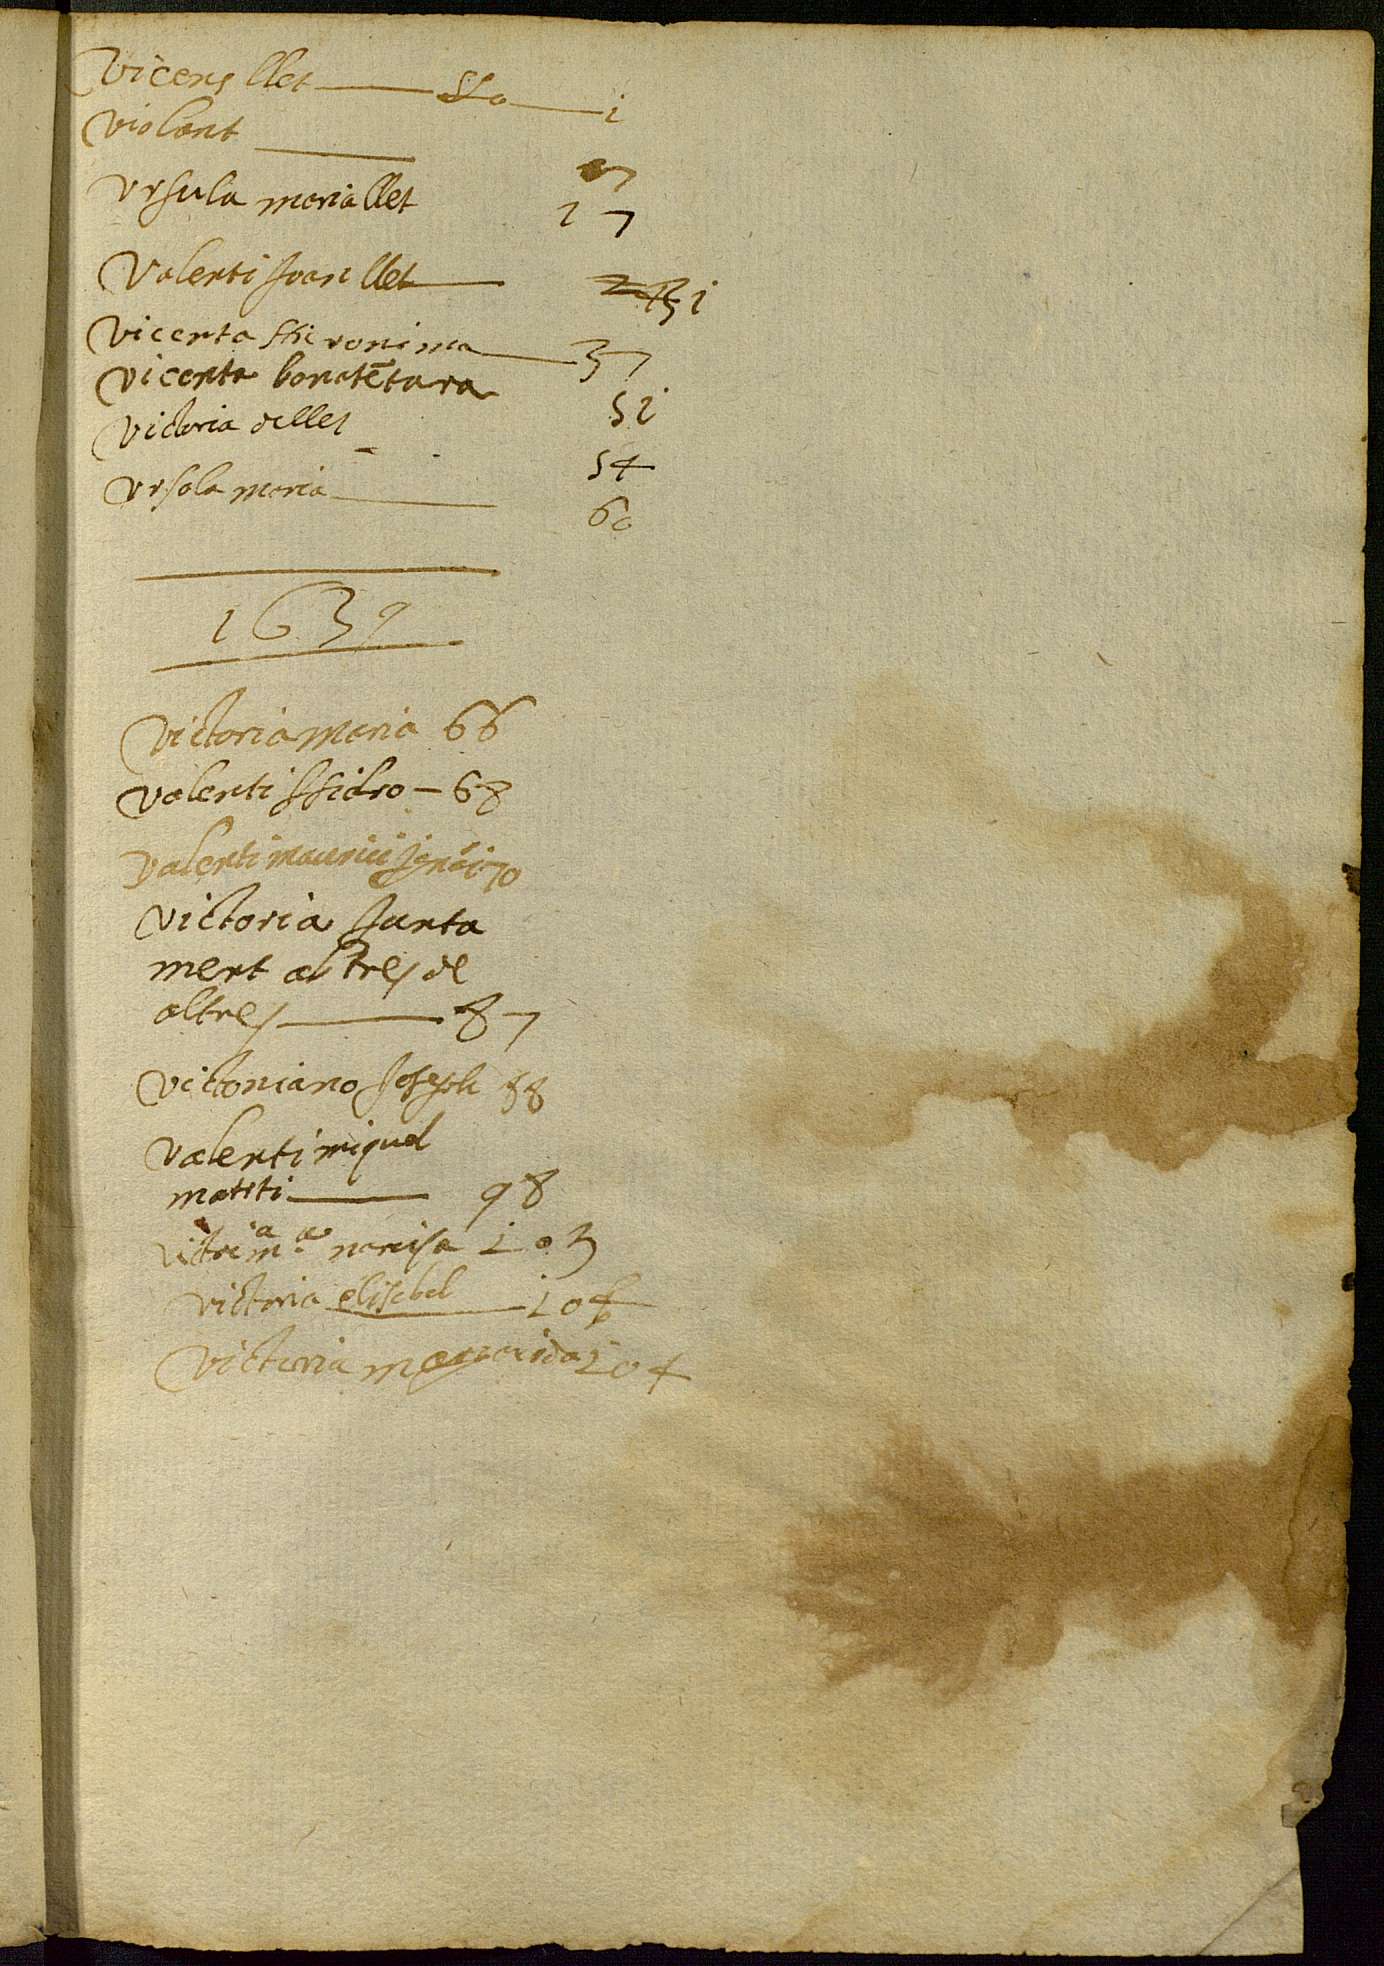 Vicens llet 1
Violant 7
Vrsula maria llet 17
Valenti Joan llet 31
Vicenta Hieronima 37
Vicenta bonavẽtura 51
Victoria dellet 54
Vrsola maria 60
1639
Victoria maria 66
Valenti Issidro - 68
Valenti maurici 70
Victoria Junta
ment ab tres de
altres 87
Victoriano Joseph 88
Valenti miquel
mathi 98
narcisa 103
Victoria elisabel 106
Victoria margarida 104